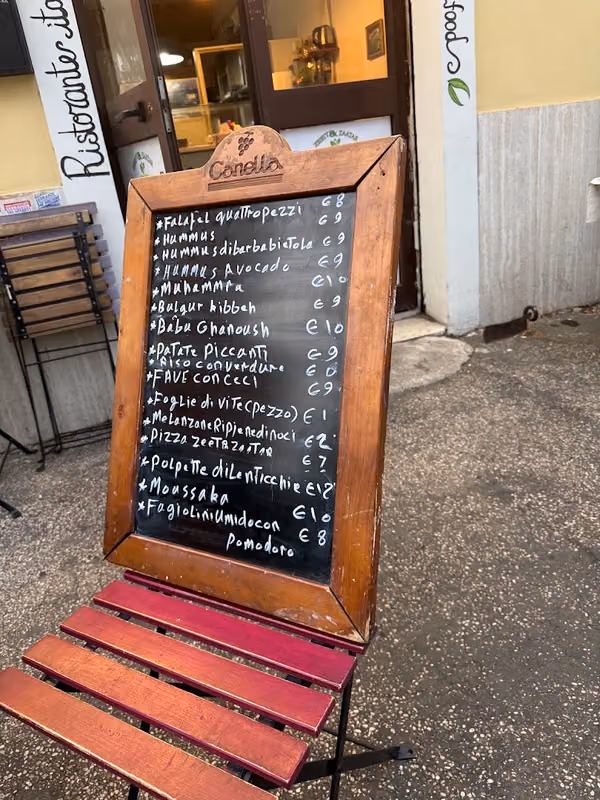 Ristorante ita
food
Canella
*Falafel quattropezzi €8
*Hummus €9
*Hummusdibarbabietola €9
*Hummus Avocado €9
*Muhammra €10
*Bulgur kibbeh €9
*Babu Ghanoush €10
*Patate Piccanti €9
*Riso converdure
*FAVE CON CECI €9
*Foglie di vite(pezzo) €1
*MelanzaneRipienedinoci €2
*Pizza zeetazaatar €7
*Polpette diLenticchie €12
*Moussaka €10
*FagioliniUmidocon €8
Pomodoro